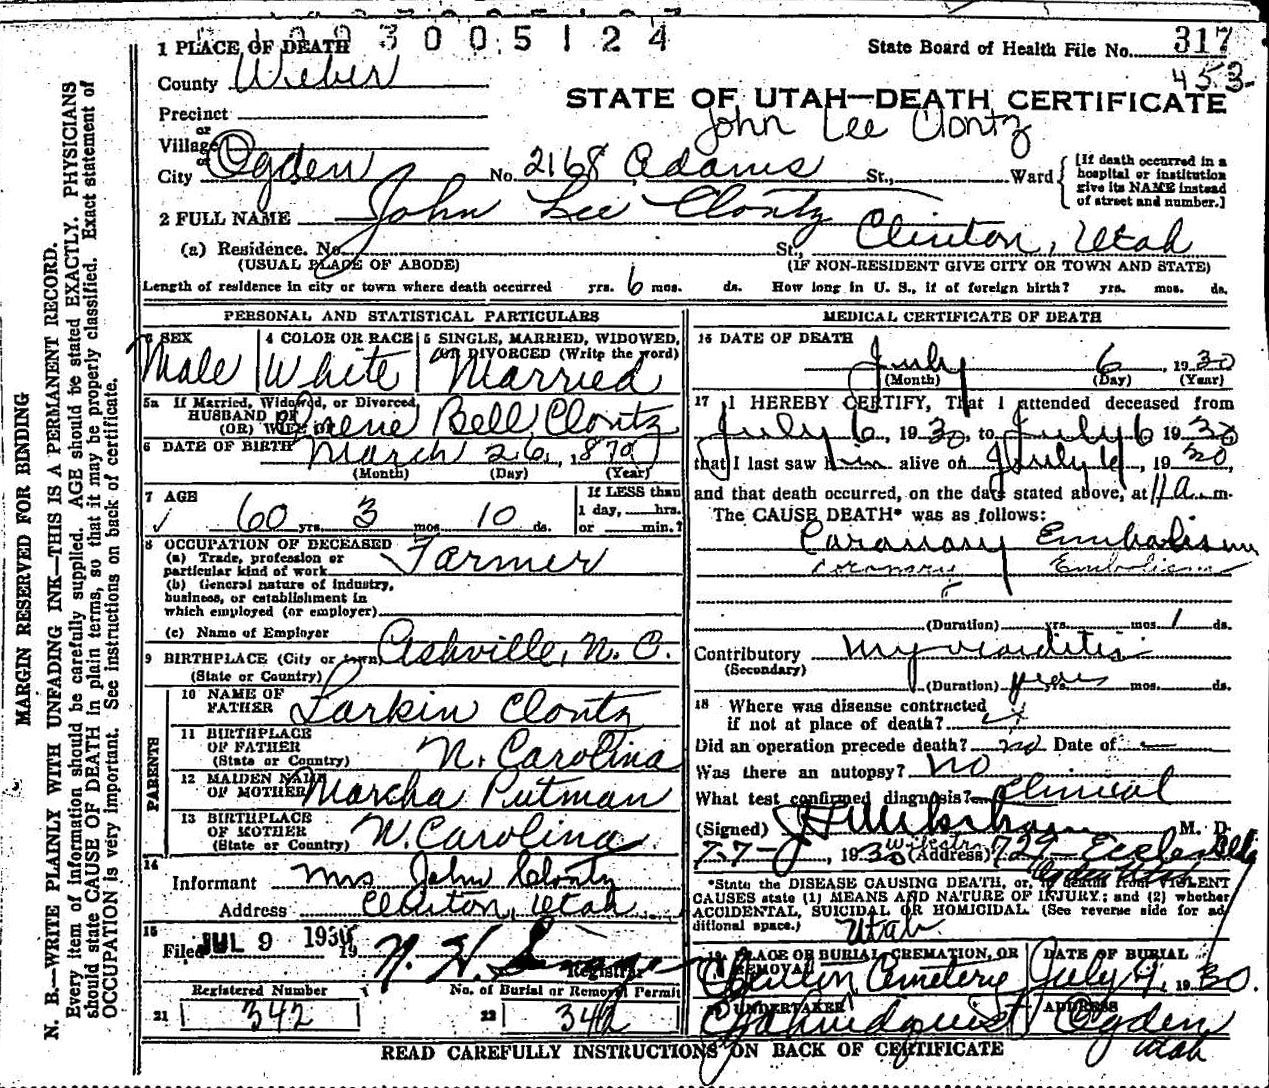 3 0 0 5 1 2 4
1 PLACE OF DEATH
State Board of Health File No. 317
County Weber
453
STATE OF UTAH—DEATH CERTIFICATE
Precinct
John Lee Clontz
or
Village
or
City Ogden No. 2168 Adams St., Ward
[If death occurred in a hospital or institution give its NAME instead of street and number.]
2 FULL NAME John Lee Clontz
(a) Residence. No. St., Clinton, Utah
(USUAL PLACE OF ABODE) (IF NON-RESIDENT GIVE CITY OR TOWN AND STATE)
Length of residence in city or town where death occurred yrs. 6 mos. ds. How long in U. S., if of foreign birth? yrs. mos. ds.
PERSONAL AND STATISTICAL PARTICULARS
3 SEX
Male
4 COLOR OR RACE
White
5 SINGLE, MARRIED, WIDOWED, OR DIVORCED (Write the word)
Married
5a If Married, Widowed, or Divorced
HUSBAND OF
(OR) WIFE OF Irene Bell Clontz
6 DATE OF BIRTH March 26, 1870
(Month) (Day) (Year)
7 AGE
60 yrs. 3 mos. 10 ds.
If LESS than
1 day, hrs.
or min.?
8 OCCUPATION OF DECEASED
(a) Trade, profession or particular kind of work Farmer
(b) General nature of industry, business, or establishment in which employed (or employer)
(c) Name of Employer
9 BIRTHPLACE (City or town) Ashville, N. C.
(State or Country)
PARENTS
10 NAME OF FATHER Larkin Clontz
11 BIRTHPLACE OF FATHER (State or Country) N. Carolina
12 MAIDEN NAME OF MOTHER Marcha Putman
13 BIRTHPLACE OF MOTHER (State or Country) N. Carolina
14
Informant Mrs John Clontz
Address Clinton, Utah
15
Filed JUL 9 1930 19
N. H. Savage
Registrar
Registered Number
21 342
No. of Burial or Removal Permit
22 342
MEDICAL CERTIFICATE OF DEATH
16 DATE OF DEATH
July 6, 1930
(Month) (Day) (Year)
17 I HEREBY CERTIFY, That I attended deceased from
July 6, 1930, to July 6 1930
that I last saw him alive on July 6, 1930,
and that death occurred, on the date stated above, at 11 a m.
The CAUSE DEATH* was as follows:
Caronary Embolism
coronary Embolism
(Duration) yrs. mos. 1 ds.
Contributory Myocarditis
(Secondary)
(Duration) years yrs. mos. ds.
18 Where was disease contracted
if not at place of death?
Did an operation precede death? no Date of
Was there an autopsy? no
What test confirmed diagnosis? Clinical
(Signed) M. D.
7-7-, 1930 (Address) 729 Eccles Bldg
Ogden Utah
*State the DISEASE CAUSING DEATH, or, in deaths from VIOLENT
CAUSES state (1) MEANS AND NATURE OF INJURY; and (2) whether
ACCIDENTAL, SUICIDAL OR HOMICIDAL. (See reverse side for additional space.)
Utah
19 PLACE OF BURIAL, CREMATION, OR REMOVAL
Clinton Cemetery
DATE OF BURIAL
July 9, 1930.
20 UNDERTAKER
Lindquist
ADDRESS
Ogden
Utah
READ CAREFULLY INSTRUCTIONS ON BACK OF CERTIFICATE
MARGIN RESERVED FOR BINDING
N. B.—WRITE PLAINLY WITH UNFADING INK—THIS IS A PERMANENT RECORD.
Every item of information should be carefully supplied. AGE should be stated EXACTLY. PHYSICIANS
should state CAUSE OF DEATH in plain terms, so that it may be properly classified. Exact statement of
OCCUPATION is very important. See instructions on back of certificate.